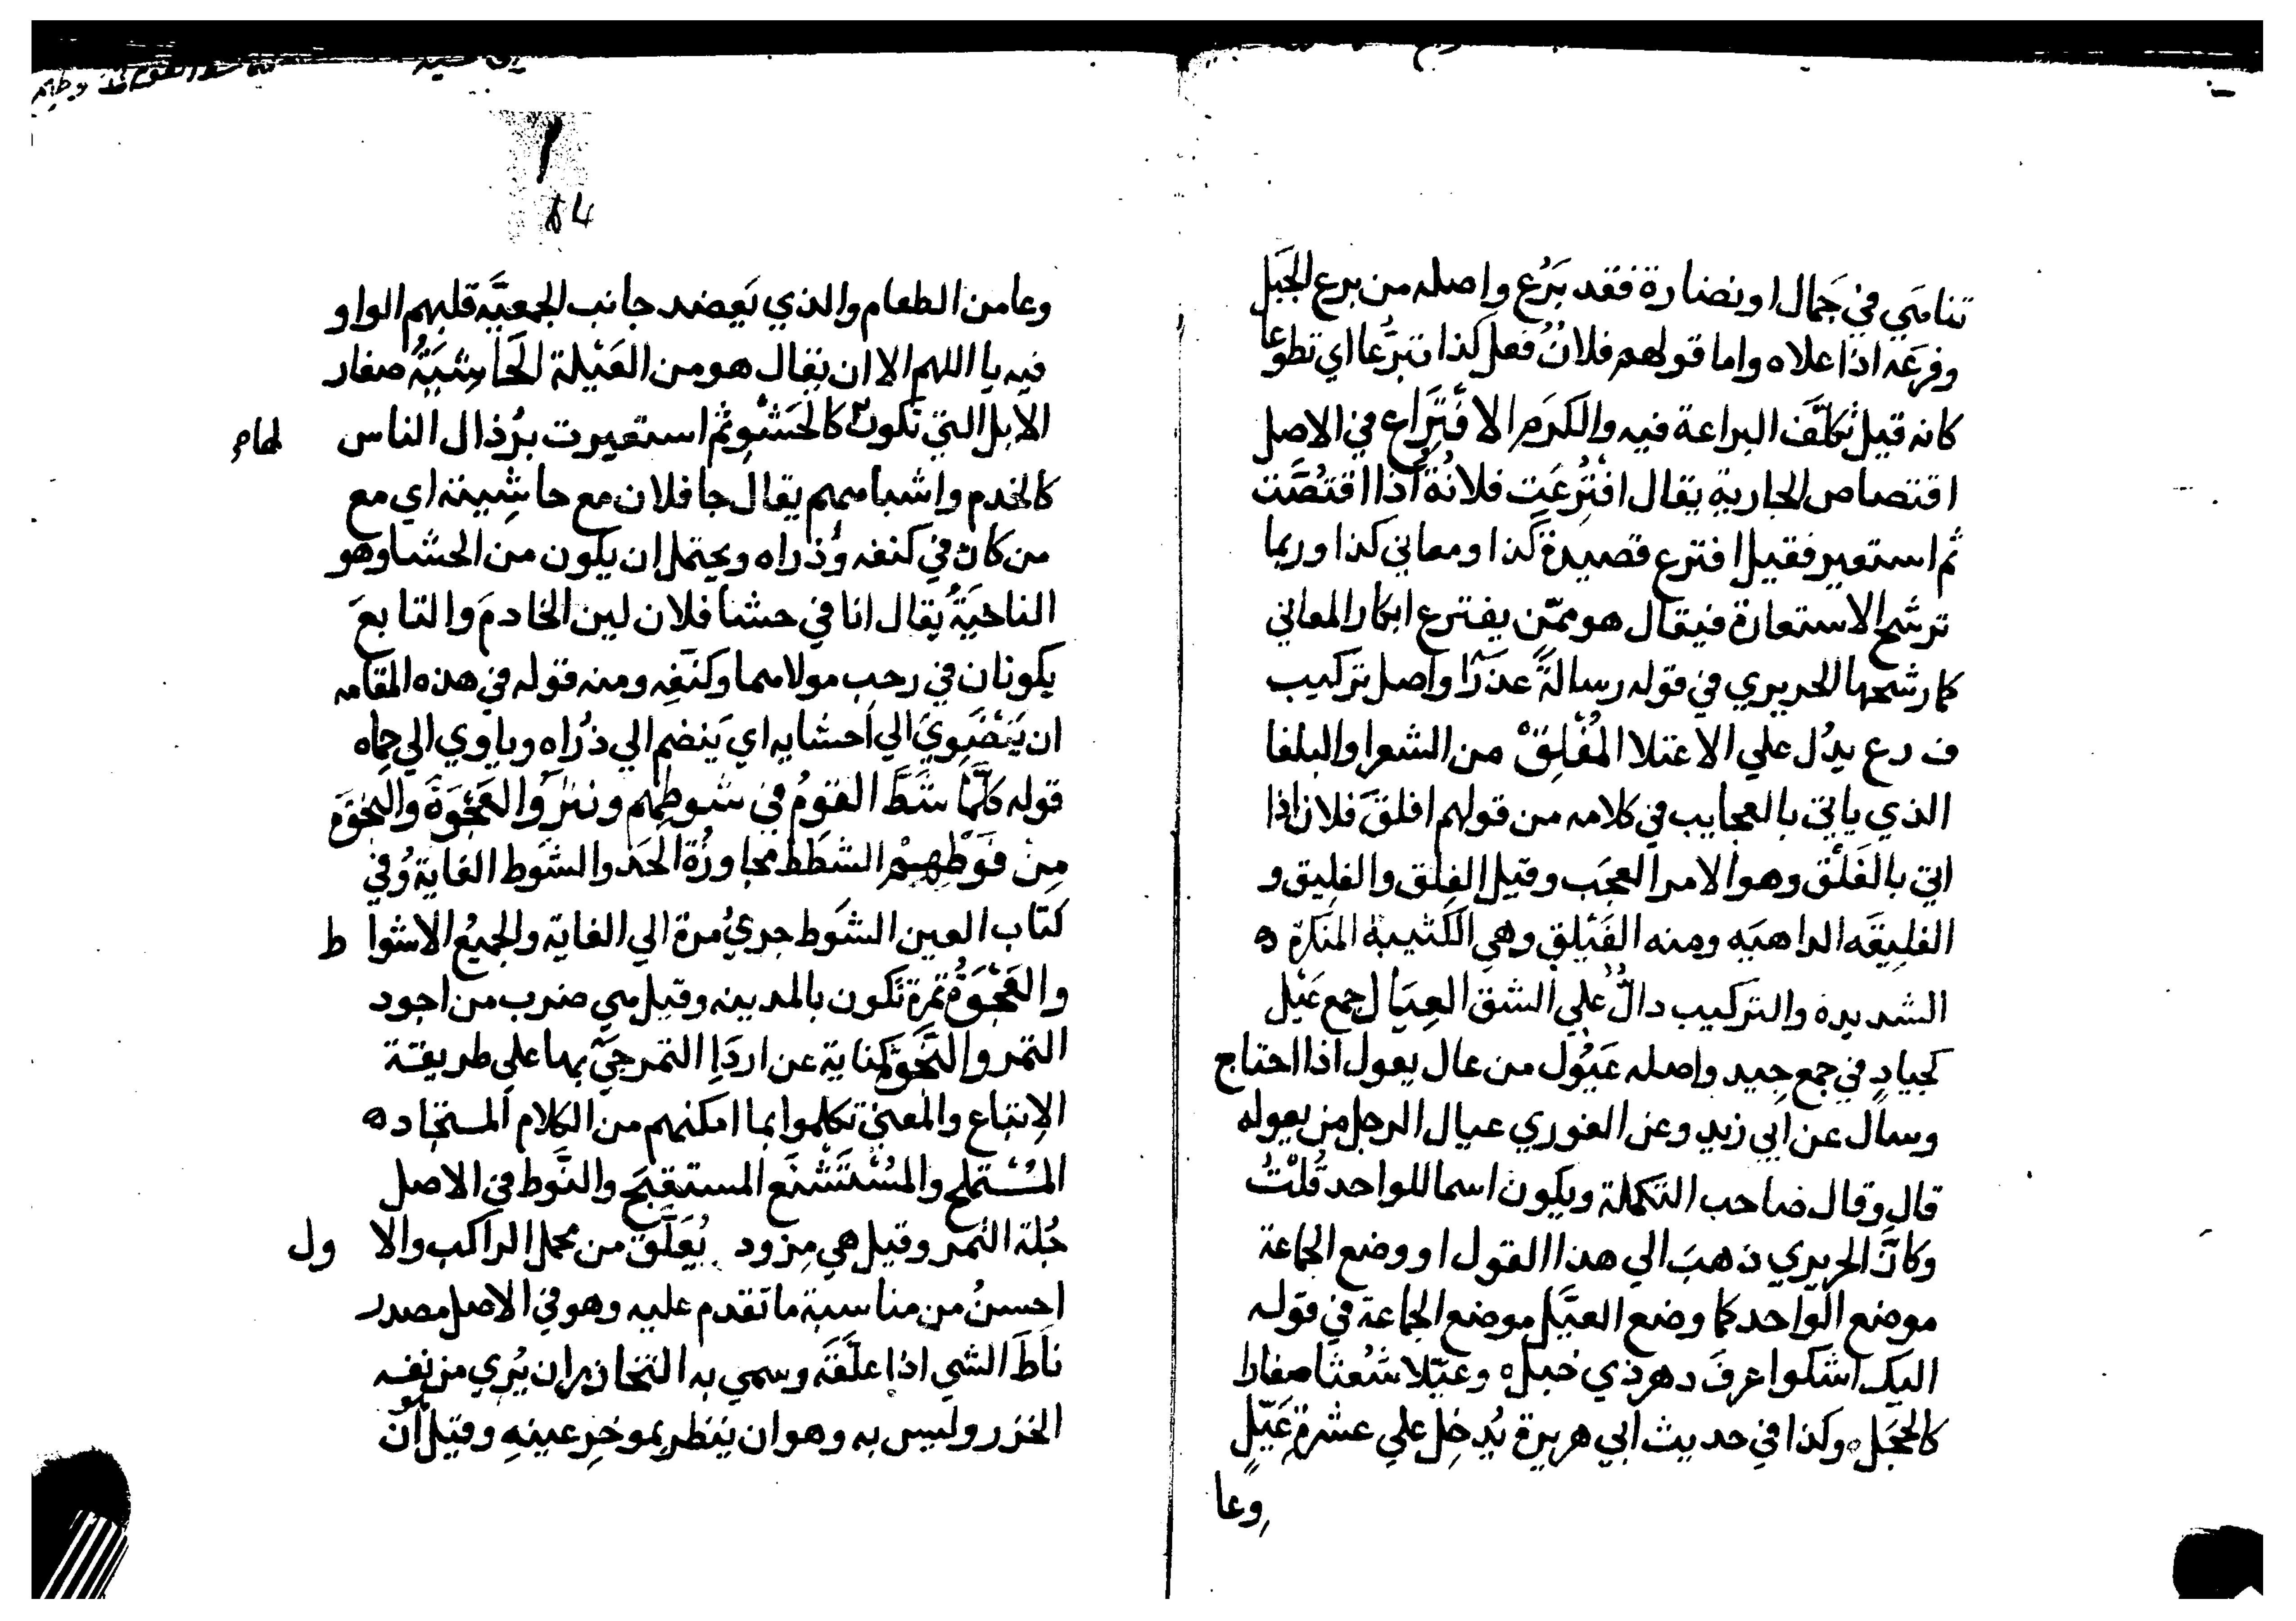 تناهي في جَمال او نضارة فقد بَرُع واصله من برع الجَبَل
وفرعَه اذا علاه واما قولهم فلانٌ فعل كذا تبرُّعا اي تطوعا
كانه قيل تكلّف البراعة فيه والكرَم الافْتِرَاع في الاصل
اقتصاص الجارية يقال افْتُرِعَت فلانةُ اذا اقتُصَّت
ثم استعير فقيل افترع قصيدة كذا ومعاني كذا وربما
ترشح الاستعارة فيقال هو ممّن يفترع ابكار المعاني
كما رشحها الحريري في قوله رسالةً عذرَا واصل تركيب
ف ر ع يدُل علي الاعتلا المُفْلِقْ من الشعرا والبلغا
الذي ياتي بالعجايب في كلامه من قولهم افلقَ فلان اذا
اتي بالفَلْق وهو الامر العجَب وقيل الفِلق والفليق و
الفليقه الداهيَه ومنه الفَيْلق وهي الكتيبة المنكرة ه
الشديده والتركيب دالٌّ علي الشق العِيَال جمع عَيّل
كجيادٍ في جمع جيد واصله عَيْوِل من عال يعول اذا احتاج
وسال عن ابي زيد وعن الغوري عيال الرجل من يعوله
قال وقال صاحب التكملة ويكون اسما للواحد قُلْتُ
وكانّ الحريري ذهبَ الي هذا القول او وضع الجماعة
موضع الواحد كما وضع العيَّل موضع الجماعة في قوله
اليك اشكوا عرقَ دهر ذي خبل ه وعيّلا شُعثا صغارا
كالحجَل ه وكذا في حديث ابي هريرة يُدخِل علي عشرة عَيّلٍ
وعا
وعا من الطعام والذي يَعضد جانب الجمعيَّة قلبهم الواو
فيه يا اللهم الا ان يقال هو من العَيْلة الحَاشيَةُ صغار
الابل التي تكون كالحَشْو ثم استعيرت برُذال الناس
كالخدم واشباههم يقال جا فلان مع حاشيته اي مع
من كان في كنفه وذُراه ويحتمل ان يكون من الحشا وهو
الناحيَةُ يقال انا في حشا فلان لين الخادمَ والتابعَ
يكونان في رحب مولاهما وكنَفِه ومنه قوله في هذه المقامه
ان يَنْضَوِيَ الي احشايه اي يَنضم الي ذُراه وياوي الي حِماه
قوله كلَّما شَطَّ القومُ في شوطهم ونثرُوا العَجْوَةَ والنَّجْوَة
مِنْ نَوْطِهِمْ الشطَطُ مجاوزَةُ الحَد والشَّوط الغايةُ وُفي
كتاب العين الشَوط جريُ مرة الي الغاية والجميعُ الاشواط
والعَجْوَةُ تمرة تكون بالمدينه وقيل هي ضرب من اجود
التمر والنَّجْوَة كناية عن اردَإِ التمر جِيَ بها علي طريقة
الاتباع والمعني تكلموا بما امكنهم من الكلام المستجاد ه
المُسْتملح والمُسْتَشْنَع المستقبَح والنَّوط في الاصل
جُلة التمر وقيل هي مِزود يُعَلَّق من محمل الراكب والاول
احسنُ من مناسبة ما تقدم عليه وهو في الاصل مصدر
ناطَ الشي اذا علّقَه وسمي به التخازر ان يُري من نفسه
الخزر وليس به وهو ان ينظر بموخِر عينهِ وقيل هو ان